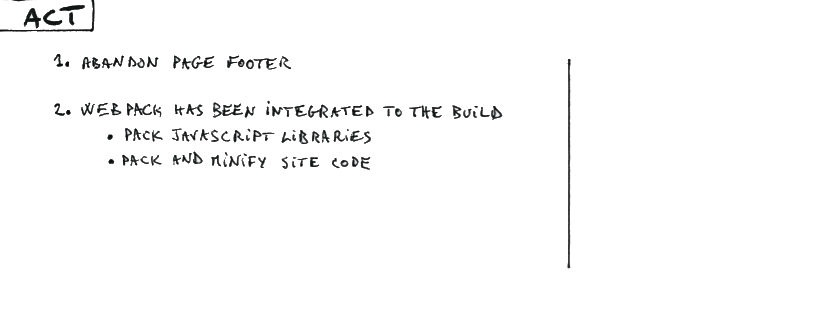 ACT
1. ABANDON PAGE FOOTER
2. WEBPACK HAS BEEN INTEGRATED TO THE BUILD
• PACK JAVASCRIPT LIBRARIES
• PACK AND MINIFY SITE CODE